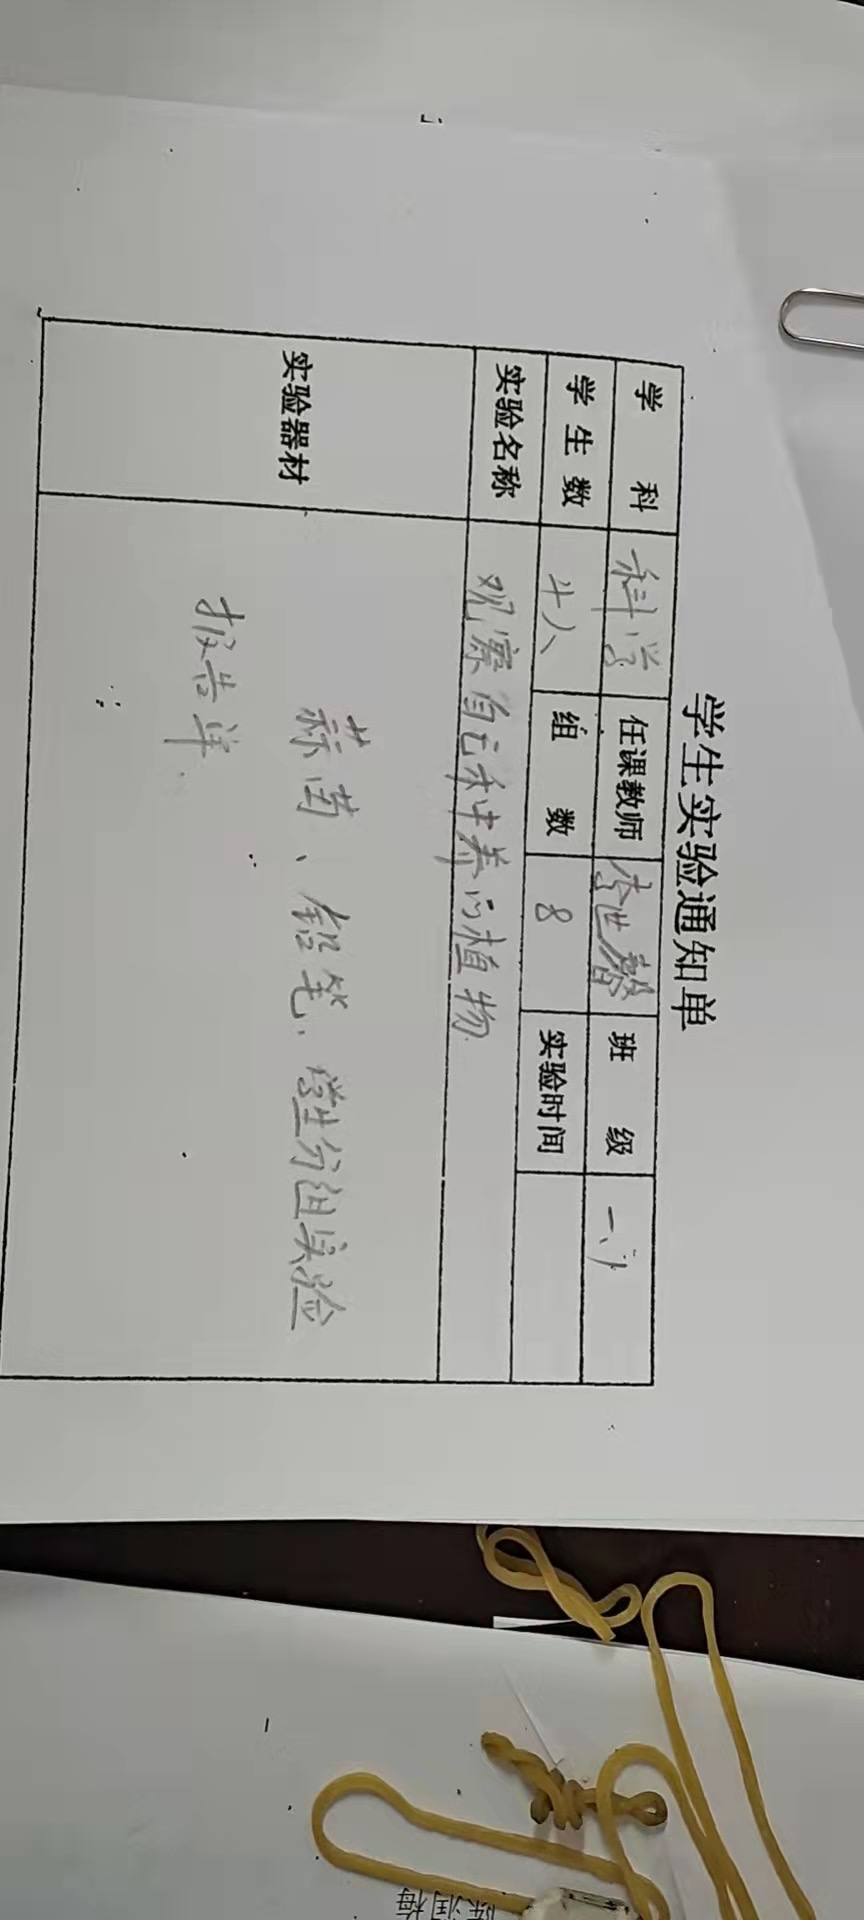 学生实验通知单
学 科 科学 任课教师 李世馨 班 级 一、
学 生 数 十八 组 数 8 实验时间
实验名称 观察自己种养的植物
实验器材 蒜苗、铅笔、学生分组实验
报告单
陈润梅